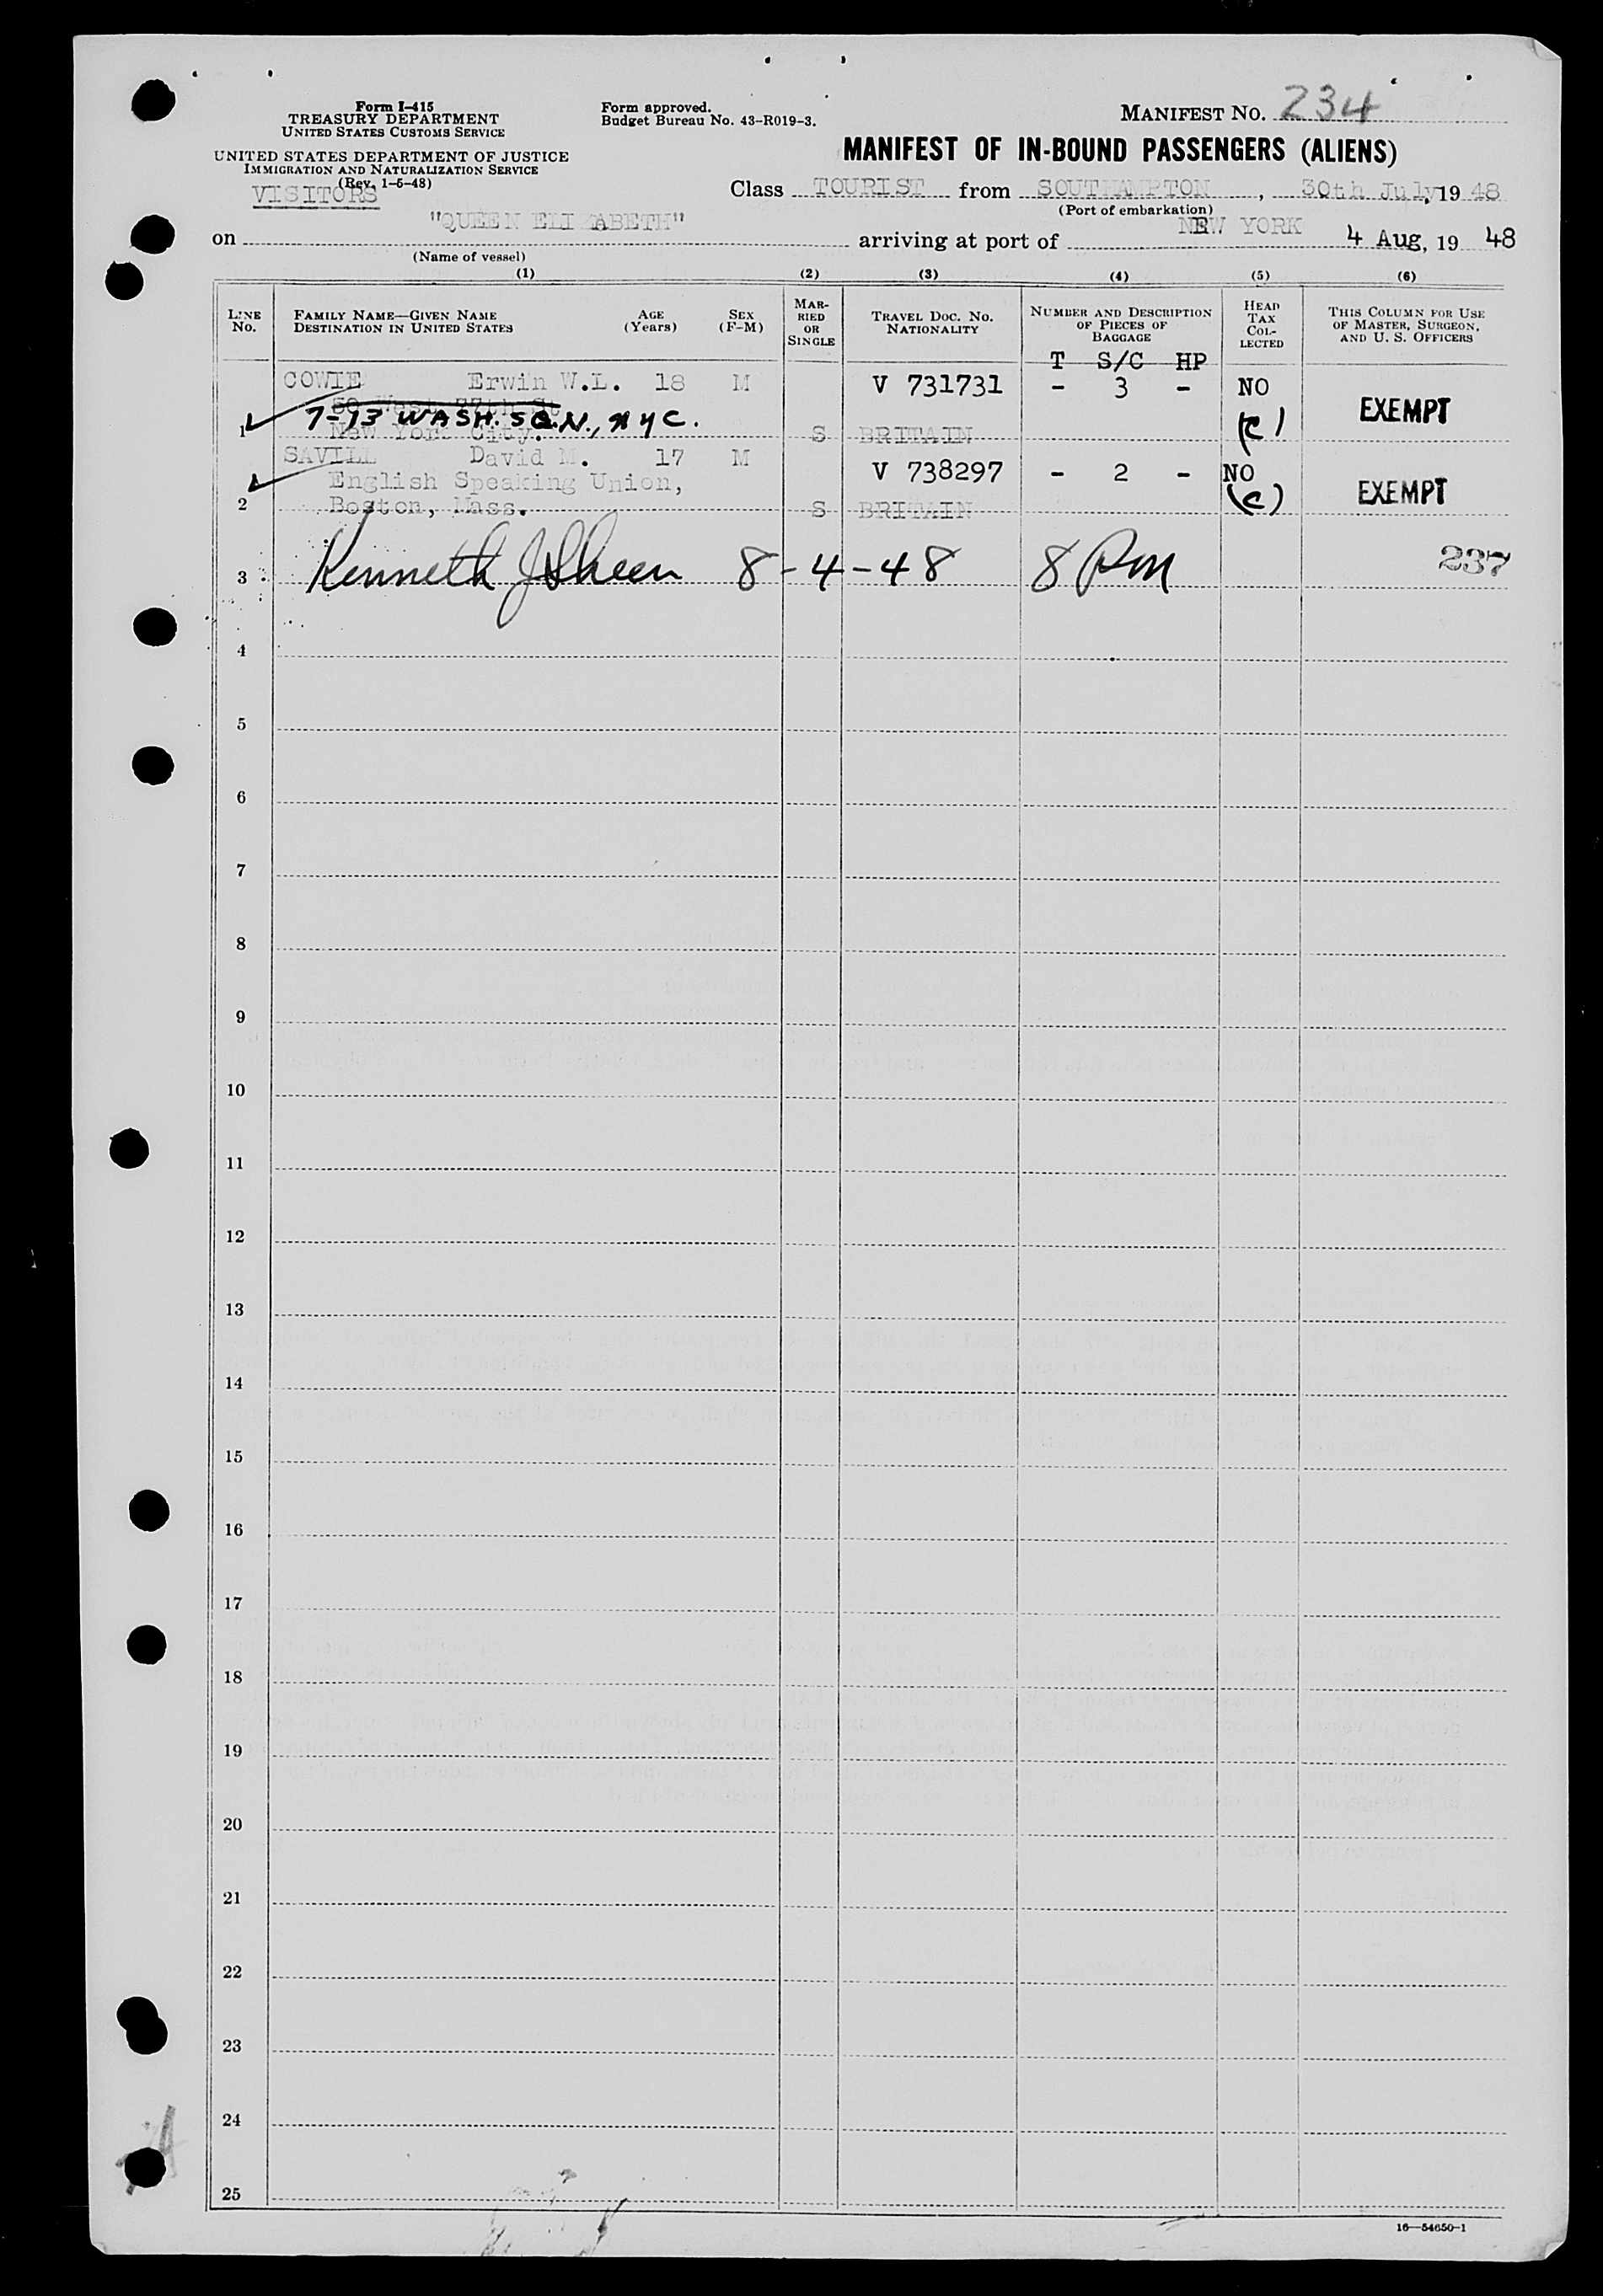 Form I-415
TREASURY DEPARTMENT
UNITED STATES CUSTOMS SERVICE
UNITED STATES DEPARTMENT OF JUSTICE
IMMIGRATION AND NATURALIZATION SERVICE
(Rev. 1-5-48)
VISITORS
Form approved.
Budget Bureau No. 43-R019-3.
MANIFEST NO. 234
MANIFEST OF IN-BOUND PASSENGERS (ALIENS)
Class TOURIST from SOUTHAMPTON, 30th July, 1948
(Port of embarkation)
on "QUEEN ELIZABETH" arriving at port of NEW YORK 4 Aug, 19 48
(Name of vessel)
(1) (2) (3) (4) (5) (6)
LINE NO.
FAMILY NAME—GIVEN NAME DESTINATION IN UNITED STATES
AGE (Years)
SEX (F-M)
MARRIED OR SINGLE
TRAVEL DOC. NO. NATIONALITY
NUMBER AND DESCRIPTION OF PIECES OF BAGGAGE
HEAD TAX COLLECTED
THIS COLUMN FOR USE OF MASTER, SURGEON, AND U. S. OFFICERS
T S/C HP
COWIE Erwin W.L. 18 M V 731731 - 3 - NO EXEMPT
50 West 77th St
7-13 WASH. SQ. N., NYC.
1 New York City. S BRITAIN (c)
SAVILL David M. 17 M V 738297 - 2 - NO EXEMPT
English Speaking Union, (c)
2 Boston, Mass. S BRITAIN
3 Kenneth J Sheen 8-4-48 8 PM 237
4
5
6
7
8
9
10
11
12
13
14
15
16
17
18
19
20
21
22
23
24
25
16—54650-1